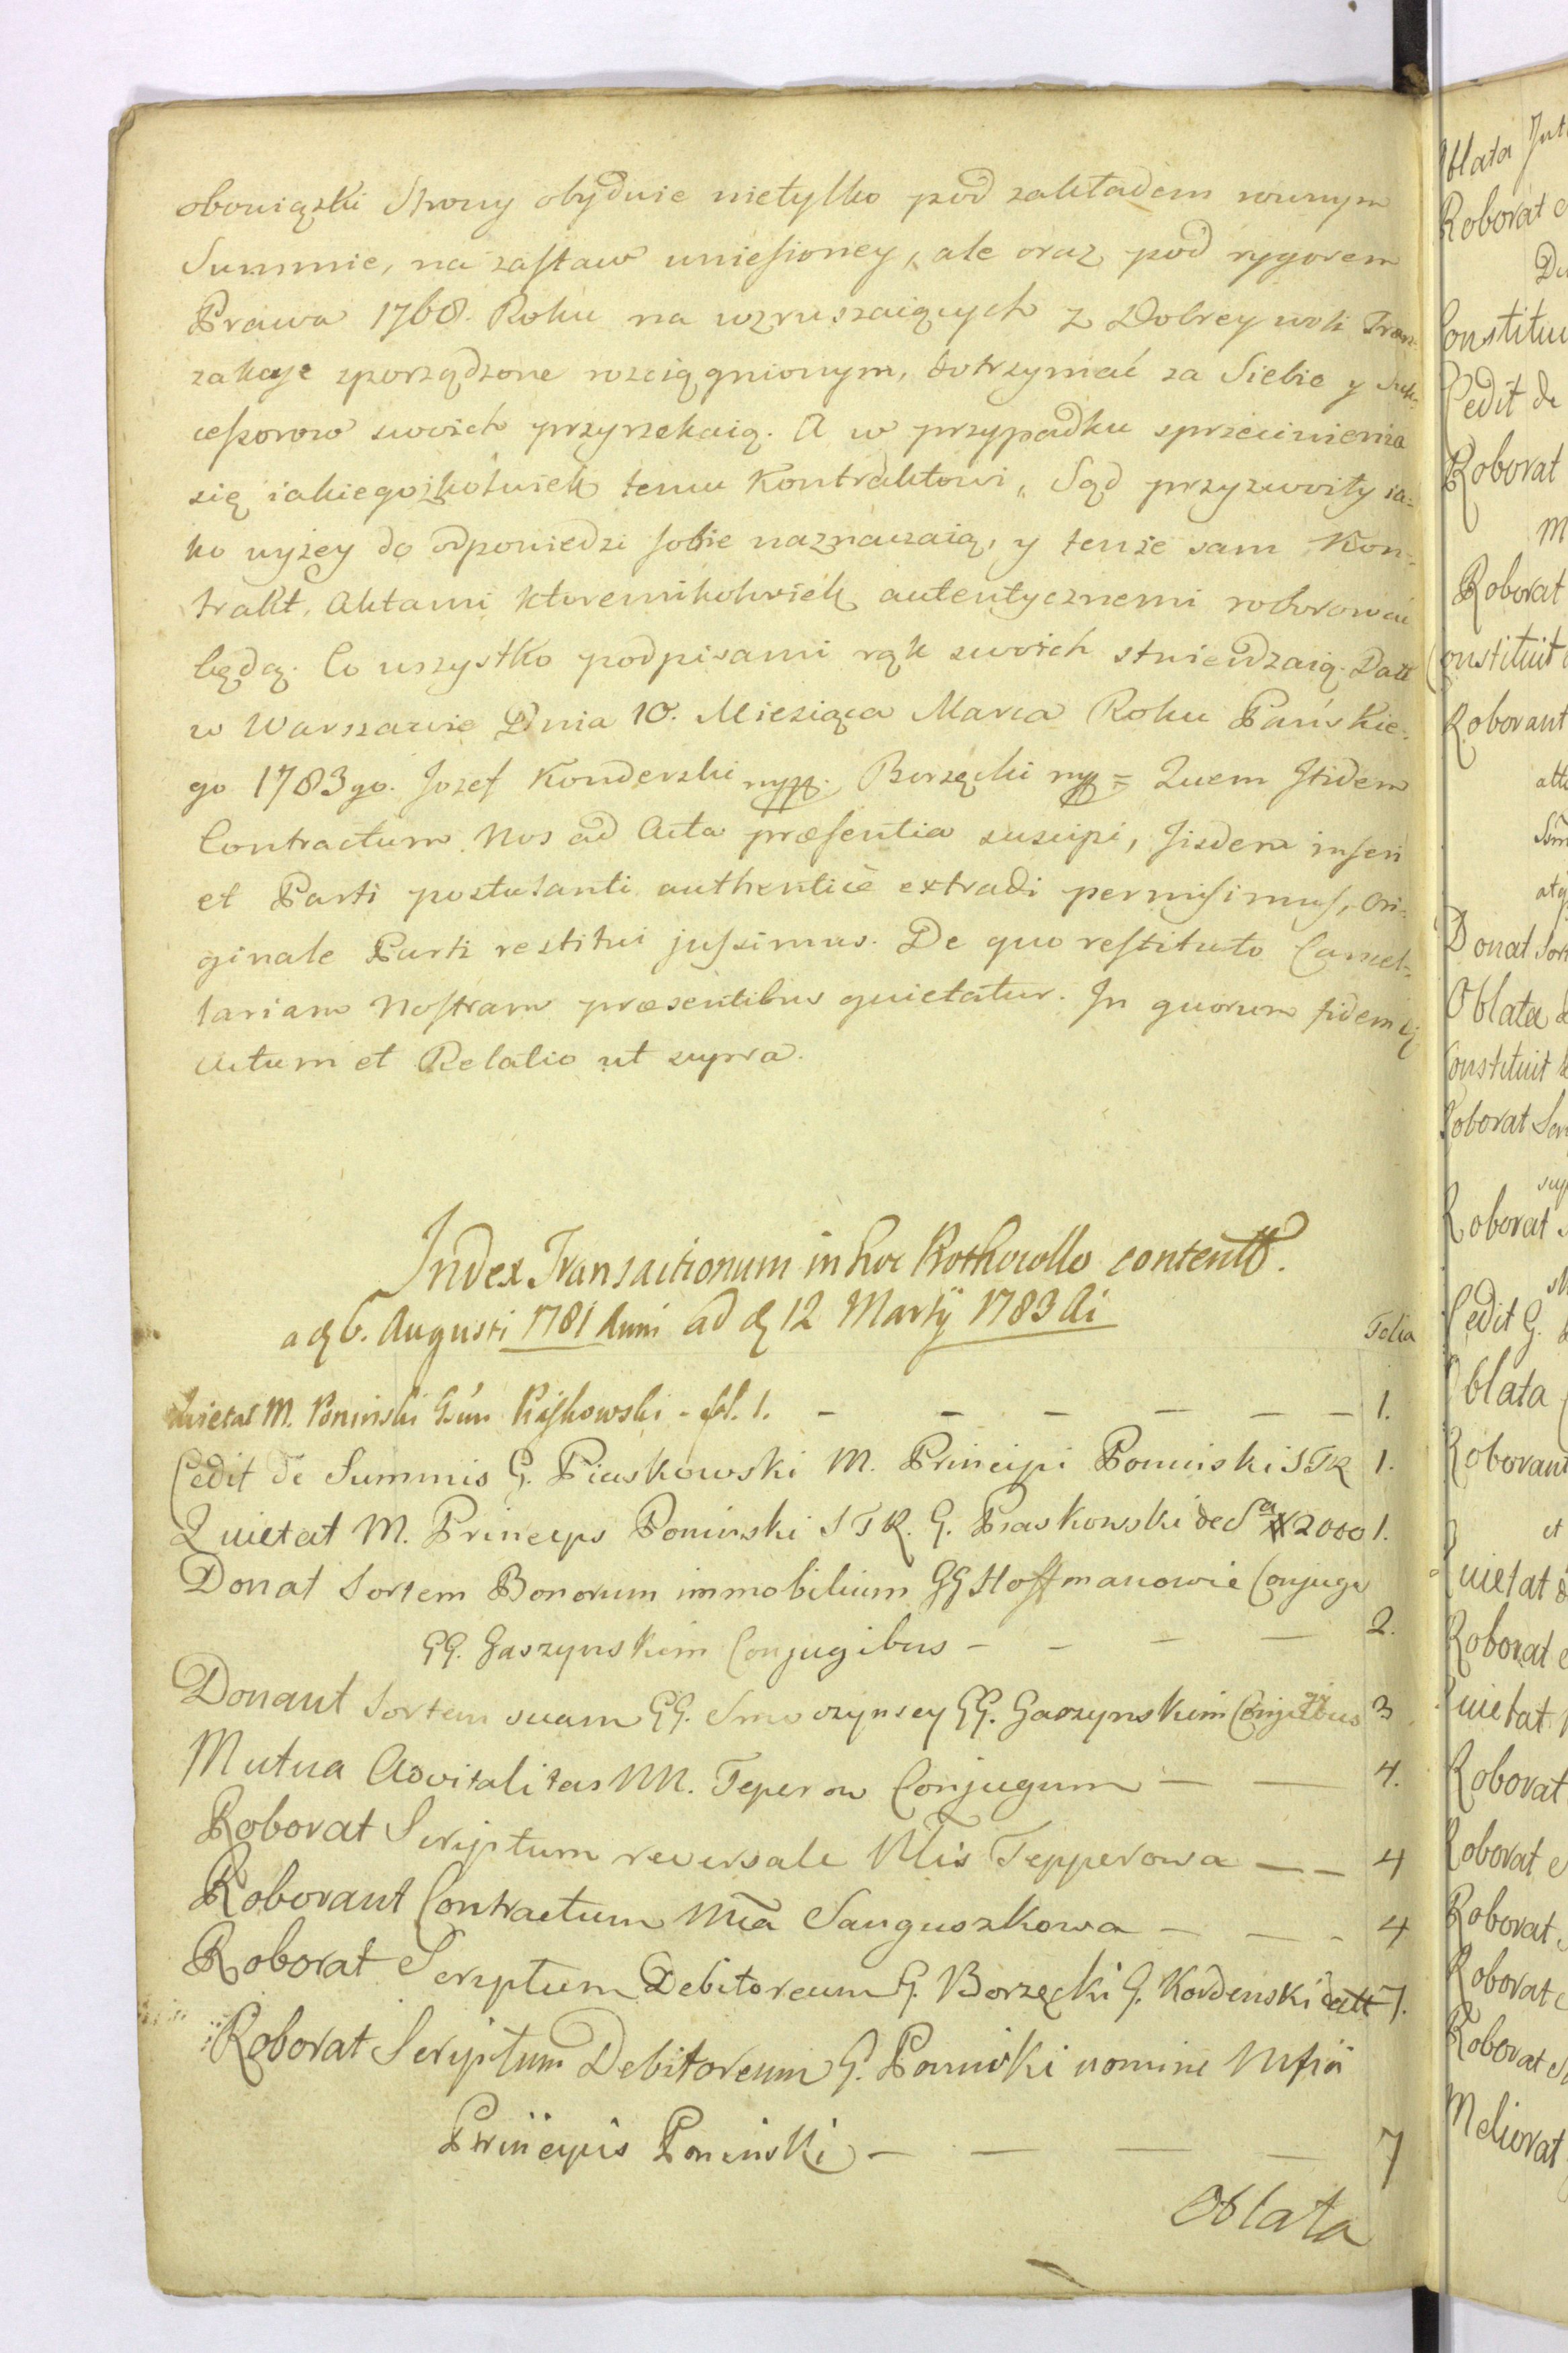 obowiązki Strony obydwie nietylko pod zakładem rownym
Summie, na zastaw wniesioney, ale oraz pod rygorem
Prawa 1768. Roku na wzruszaiących z Dobrey woli Tran-
zakcye zporządzone rozciągnionym, dotrzymać za Siebie y Suk-
cessorow swoich przyrzekaią. A w przypadku sprzeciwienia
się iakiegożkolwiek temu Kontraktowi, Sąd przyzwoity ia-
ko wyżey do odpowiedzi sobie naznaczaią, y tenże sam Kon-
trakt, Aktami ktoremikolwiek autentycznemi roborować
będą. Co wszystko podpisami rąk swoich stwierdzaią. Datt
w Warszawie Dnia 10. Miesiąca Marca Roku Pańskie-
go 1783go. Jozef Konderski mpp. Borzęcki mp = Quem Itidem
Contractum Nos ad Acta præsentia suscipi, Iisdem inseri
et Parti postulanti authenticè extradi permisimus, Ori-
ginale Parti restitui jussimus. De quo restituto Cancel-
lariam Nostram præsentibus quietatur. In quorum fidem
Actum et Relatio ut supra.
Index Transactionum in hoc Prothocollo contentt.
a d 6. Augusti 1781 Anni ad d 12 Martÿ 1783 Ai
Folia
Quietat M. Poninski Piaskowski - fl. 1. - - - - - - 1.
Cedit de Summis G. Piaskowski M. Principi Poninski STR 1.
Quietat M. Princeps Poninski STR. G. Piaskowski de Sa # 2000 1.
Donat Sortem Bonorum immobilium GG Hoffmanowie Conjuges
GG. Gaszynskim Conjugibus - - - - 2.
Donant Sortem suam GG. Smoczynscy GG. Gaszynskim Conjugibus 3
Mutua Advitalitas MM. Teperow Conjugum - - 4.
Roborat Scriptum reversale Mlis Tepperowa - - 4
Roborant Contractum Mca Sanguszkowa - - - 4
Roborat Scriptum Debitoreum G. Borzęcki G. Kordenski datt 7.
Roborat Scriptum Debitoreum G. Poninski nomine
Principis Poninski - - - - 7
Oblata
Oblata
Roborat
Constitui
Cedit de
Roborat
M
Roborat
Constituit
Roborant
Donat
Oblata
Constituit
Roborat
Roborat
Cedit G.
Oblata
Roborant
et
Quietat
Roborat
Quietat
Roborat
Roborat
Roborat
Roborat
Roborat
Meliorat